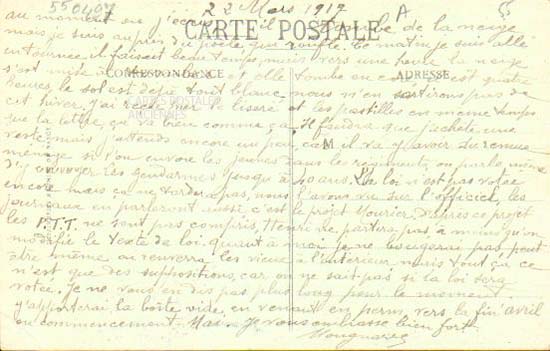 550497
22 Mars 1917
A
CARTE POSTALE
CORRESPONDANCE
ADRESSE
CARTES POSTALES
ANCIENNES
M
au moment où j'écris il tombe de la neige
mais je suis auprès du poele qui ronfle. Ce matin je suis allé
en tournée il faisait beau temps, mais vers une heure la neige
s'est mise à et elle tombe en ce moment quatre
heures, le sol est déjà tout blanc nous n'en sortirons pas de
cet hiver. J'ai reçu hier le liseré et les pastilles en même temps
que la lettre, ça va bien comme ça. Il faudra que j'achète une
veste mais j'attends encore un peu, car il va y avoir du remue
ménage si l'on envoie les jeunes dans les régiments, on parle même
d'y envoyer les gendarmes jusqu'à 40 ans. La loi n'est pas votée
encore mais ça ne tardera pas, nous l'avons vu sur l'officiel, les
journaux en parleront aussi c'est le projet Mourier. D'après ce projet
les P.T.T. ne sont pas compris, Henri ne partira pas à moins qu'on
modifie le texte de loi, quant à moi je ne bougerai pas, peut
être même on renverra les vieux à l'intérieur mais tout ça ce
n'est que des suppositions, car on ne sait pas si la loi sera
votée. Je ne vous en dis pas plus long pour le moment
j'apporterai la boîte vide, en venant en perm, vers la fin avril
ou commencement Mai. Je vous embrasse bien fort